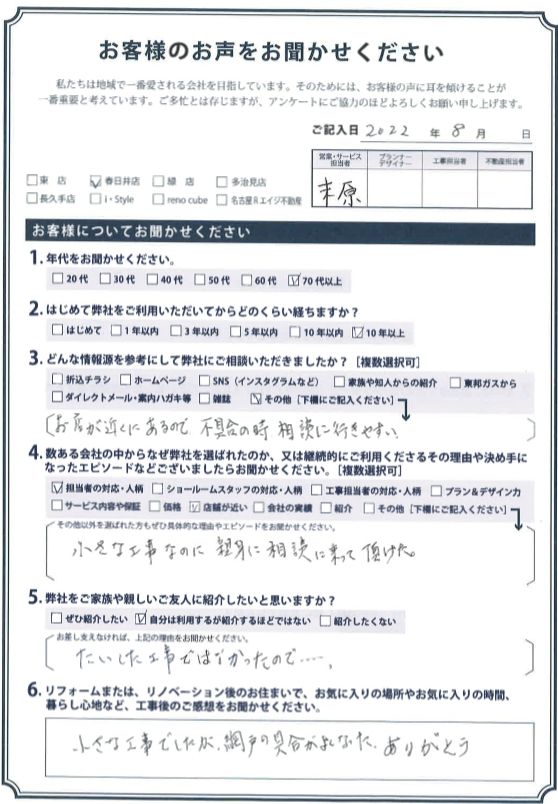 お客様のお声をお聞かせください
私たちは地域で一番愛される会社を目指しています。そのためには、お客様の声に耳を傾けることが
一番重要と考えています。ご多忙とは存じますが、アンケートにご協力のほどよろしくお願い申し上げます。
ご記入日 2022 年 8 月 日
営業・サービス担当者 プランナーデザイナー 工事担当者 不動産担当者
末原
□東 店 ☑春日井店 □緑 店 □多治見店
□長久手店 □i・Style □reno cube □名古屋Rエイジ不動産
お客様についてお聞かせください
1. 年代をお聞かせください。
□20代 □30代 □40代 □50代 □60代 ☑70代以上
2. はじめて弊社をご利用いただいてからどのくらい経ちますか?
□はじめて □1年以内 □3年以内 □5年以内 □10年以内 ☑10年以上
3. どんな情報源を参考にして弊社にご相談いただきましたか?[複数選択可]
□折込チラシ □ホームページ □SNS(インスタグラムなど) □家族や知人からの紹介 □東邦ガスから
□ダイレクトメール・案内ハガキ等 □雑誌 ☑その他[下欄にご記入ください]
お店が近くにあるので 不具合の時 相談に行きやすい
4. 数ある会社の中からなぜ弊社を選ばれたのか、又は継続的にご利用くださるその理由や決め手に
なったエピソードなどございましたらお聞かせください。[複数選択可]
☑担当者の対応・人柄 □ショールームスタッフの対応・人柄 □工事担当者の対応・人柄 □プラン&デザイン力
□サービス内容や保証 □価格 ☑店舗が近い □会社の実績 □紹介 □その他[下欄にご記入ください]
その他以外を選ばれた方もぜひ具体的な理由やエピソードをお聞かせください。
小さな工事なのに 親身に相談に乗って頂けた。
5. 弊社をご家族や親しいご友人に紹介したいと思いますか?
□ぜひ紹介したい ☑自分は利用するが紹介するほどではない □紹介したくない
お差し支えなければ、上記の理由をお聞かせください。
たいした工事ではなかったので……。
6. リフォームまたは、リノベーション後のお住まいで、お気に入りの場所やお気に入りの時間、
暮らし心地など、工事後のご感想をお聞かせください。
小さな工事でしたが、網戸の具合がよくなった、ありがとう